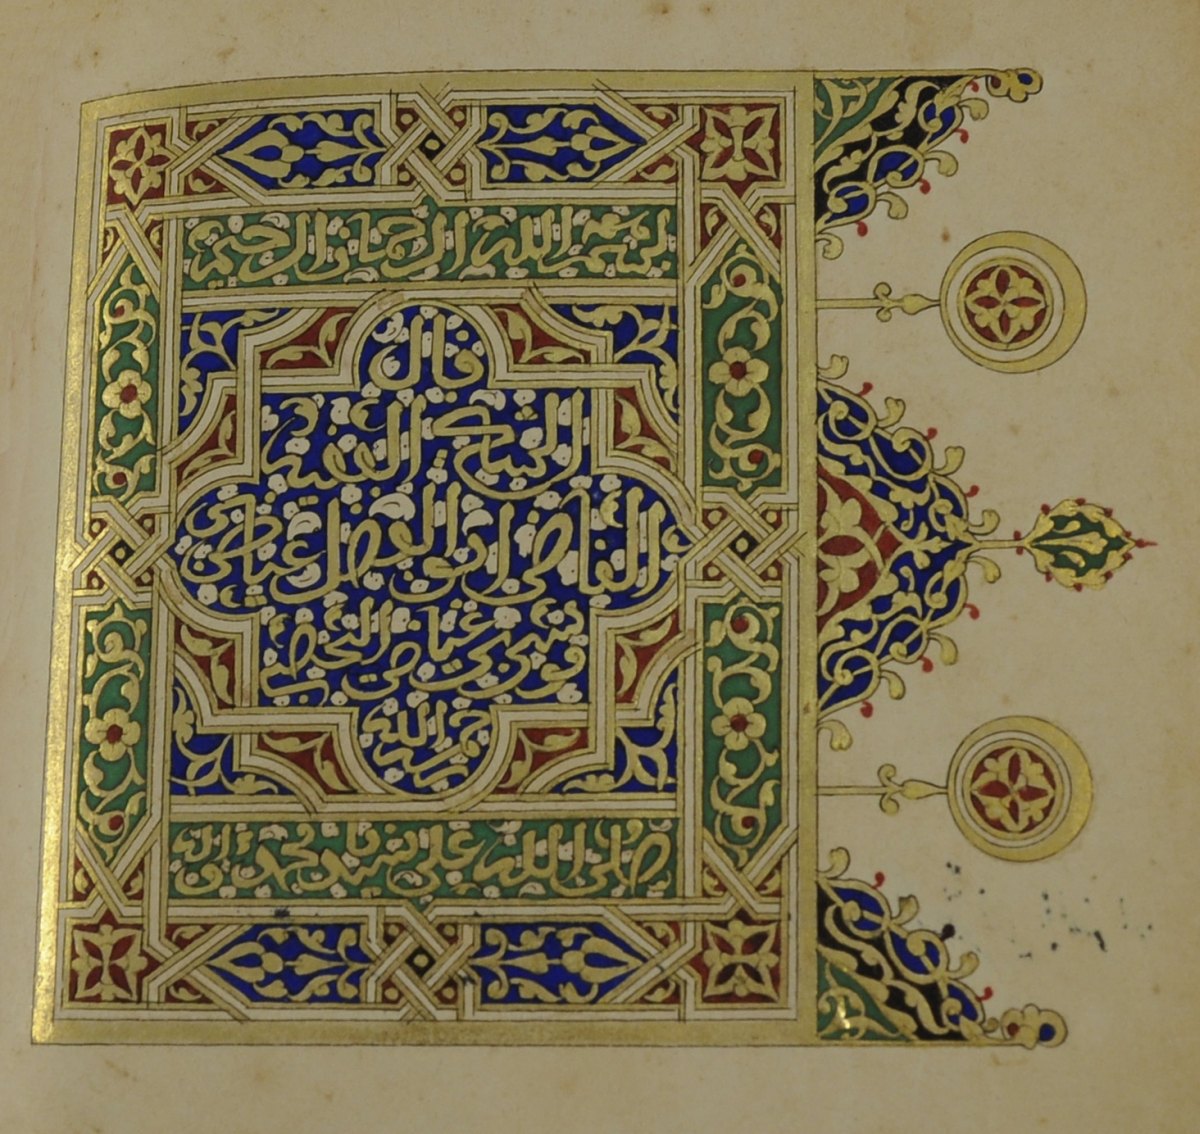 بسم الله الرحمن الرحيم
قال
الشيخ الفقيه
القاضى ابو الفضل عياض بن
موسى بن عياض اليحصبي
رحمه الله
صلى الله على سيدنا محمد وءاله